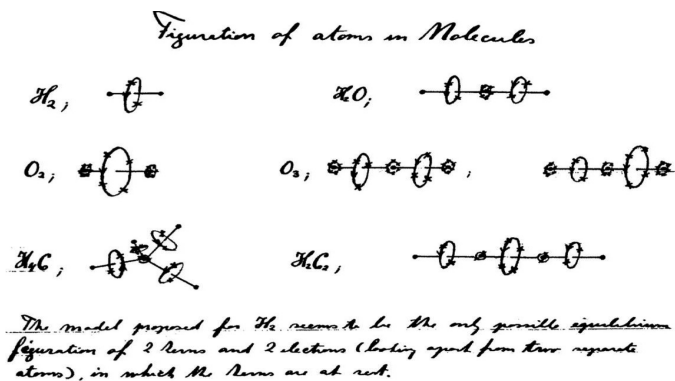 Figuration of atoms in Molecules
H₂; H₂O;
O₂; O₃; ,
H₄C; H₂C₂;
The model proposed for H₂ seems to be the only possible equilibrium
figuration of 2 kerns and 2 electrons (looking apart from two separate
atoms), in which the kerns are at rest.